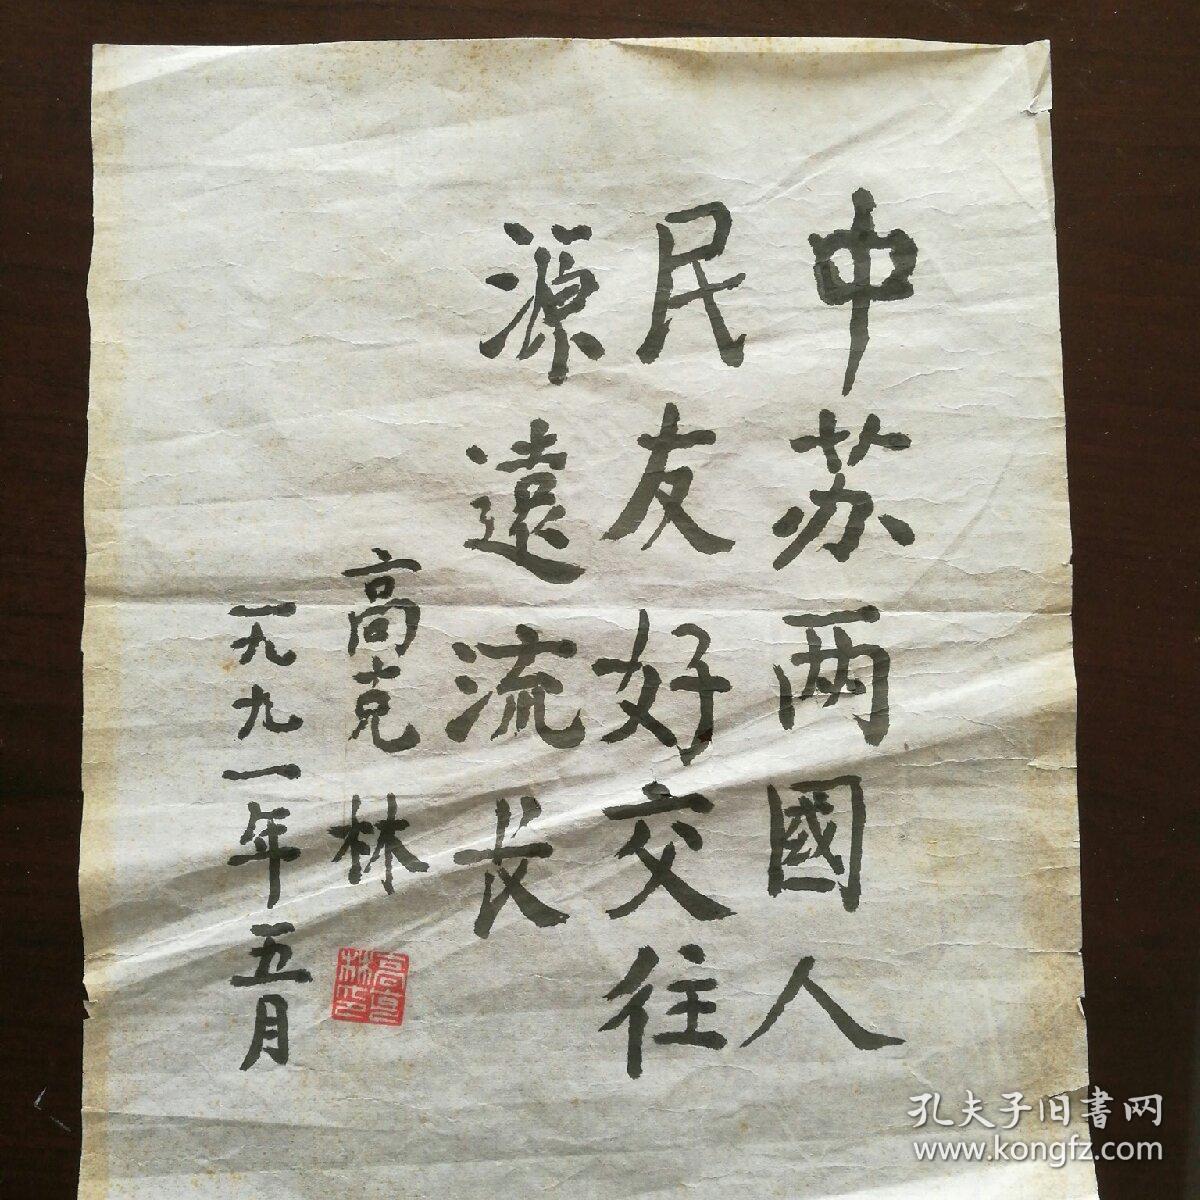 中苏两國人
民友好交往
源遠流长
高克林
一九九一年五月
高克林印
孔夫子旧書网
www.kongfz.com